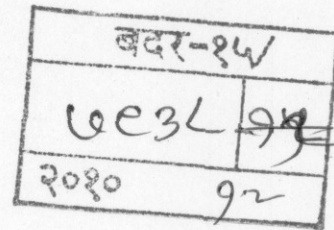 बदर-१५/
७९३८
२०१० १२